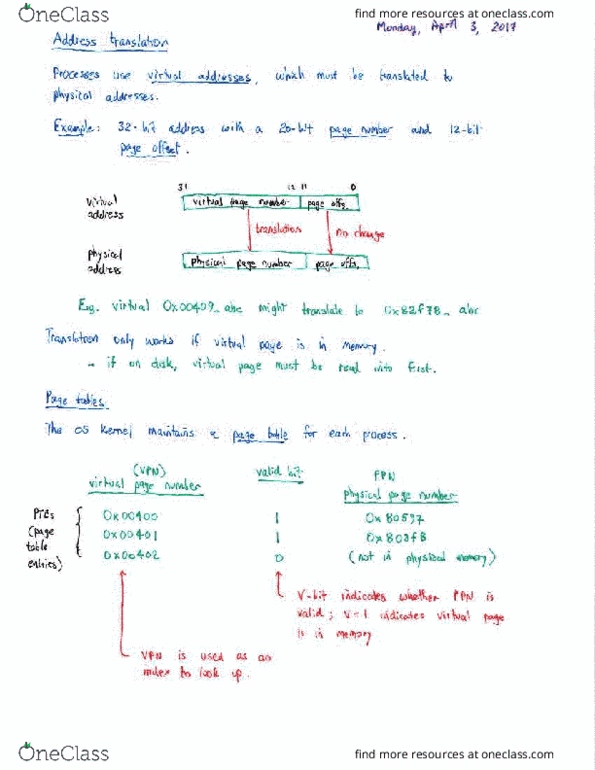 OneClass
find more resources at oneclass.com
Monday, April 3, 2017
Address translation
Processes use virtual addresses, which must be translated to
physical addresses.
Example: 32-bit address with a 20-bit page number and 12-bit
page offset.
31 12 11 0
virtual address
virtual page number page offs.
translation no change
physical address
physical page number page offs.
Eg. virtual 0x00409_abc might translate to 0x82f78_abc
Translation only works if virtual page is in memory.
- if on disk, virtual page must be read into first.
Page tables
The OS Kernel maintains a page table for each process.
(VPN) valid bit PPN
virtual page number physical page number
PTEs (page table entries)
0x00400 1 0x80597
0x00401 1 0x803fB
0x00402 0 (not in physical memory)
V-bit indicates whether PPN is
valid; V=1 indicates virtual page
is in memory
VPN is used as an
index to look up.
OneClass
find more resources at oneclass.com